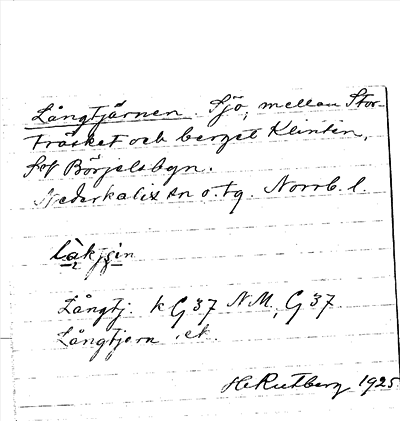 Långtjärnen. Sjö, mellan Stor-
träsket och berget Klinten,
Börjelsbyn.
Nederkalix sn o. tg. Norrb. l.
Långtj. k G 37 N.M., G 37
Långtjern
H Rutberg 1925